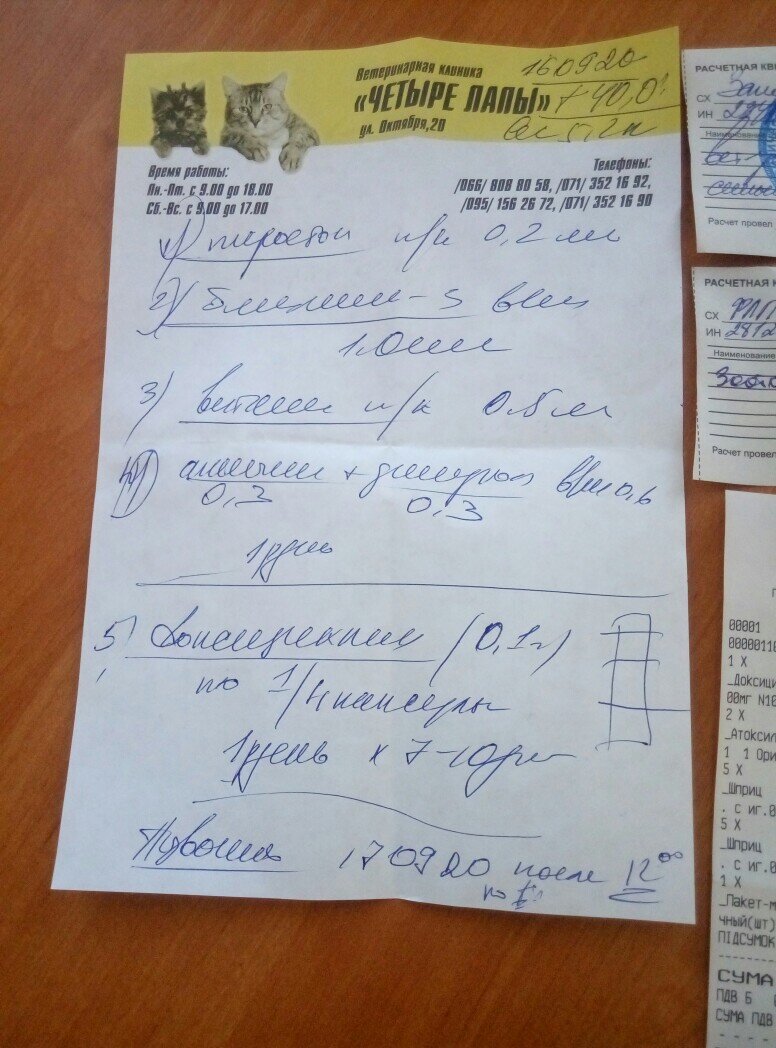 Ветеринарная клиника
«ЧЕТЫРЕ ЛАПЫ»
ул. Октября, 20
160920
t 40,0°
Время работы:
Пн.-Пт. с 9.00 до 18.00
Сб.-Вс. с 9.00 до 17.00
Телефоны:
/066/ 808 80 58, /071/ 352 16 92,
/095/ 156 26 72, /071/ 352 16 90
1) п/к 0,2 мл
2) в/м
1.0 мл
3) п/к 0.5 мл
4) анальгин + димедрол в/м 0,6
0,3 0.3
1 р/день
5) Доксициклин (0,1г)
по 1/4 капсулы
1 р/день х 7-10 дн
Позвонить 170920 после 12 00
РАСЧЕТНАЯ КВ
СХ
ИН
Наименование
Расчет провел
РАСЧЕТНАЯ К
СХ
ИН 2812
Наименование
Расчет провел
00001
0000011
1 X
_Доксици
00мг N10
2 X
_Атоксил
1 1 Ори
5 X
_Шприц
. С иг.0
5 X
_Шприц
. С иг.0
1 X
_Пакет-м
чный(шт)
ПІДСУМОК
СУМА
ПДВ Б
СУМА ПДВ